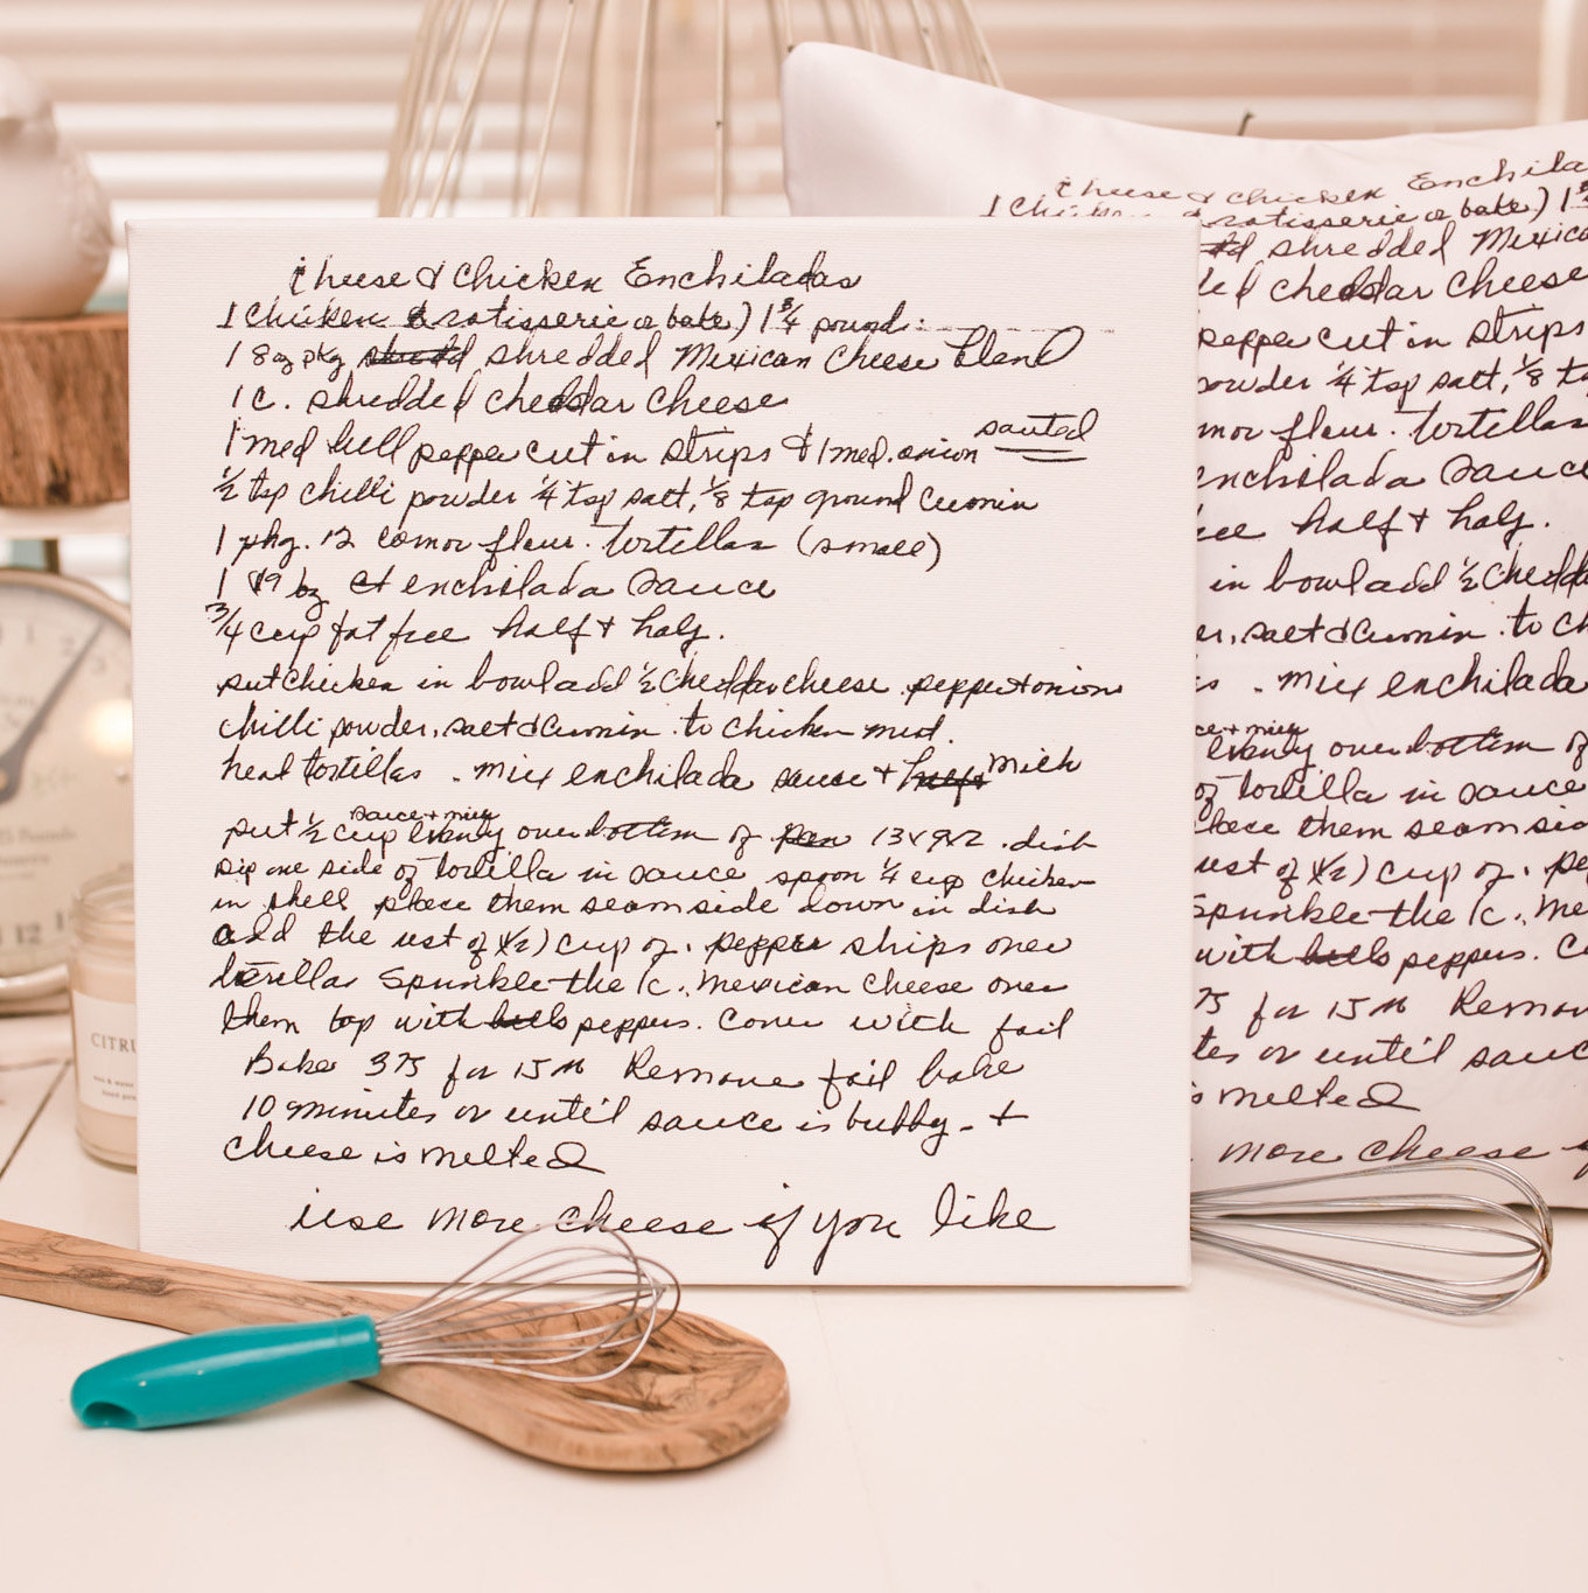 Cheese & Chicken Enchiladas
1 Chicken rotisserie or bake) 1 3/4 pound.
1 8oz pkg shredded Mexican cheese blend
1 c. shredded cheddar cheese
sauted
1 med bell pepper cut in strips & 1 med. onion
1/2 tsp chilli powder 1/4 tsp salt, 1/8 tsp ground cumin
1 pkg. 12 flour. tortillas (small)
1 19 oz enchilada sauce
3/4 cup fat free half + half.
put chicken in bowl add 1/2 cheddar cheese. pepper + onions
chilli powder, salt & cumin. to chicken
heat tortillas. mix enchilada sauce + milk
sauce + milk
put 1/2 cup evenly over bottom of 13x9x2. dish
dip one side of tortilla in sauce spoon 1/4 cup chicken
in shell place them seam side down in dish
add the rest of 1/2) cup of. pepper strips over
Sprinkle the 1c. Mexican cheese over
them top with peppers. Cover with foil
Bake 375 for 15 m Remove foil bake
10 minutes or until sauce is bubbly. +
cheese is melted
use more cheese if you like
Cheese & Chicken Enchila
rotisserie or bake) 1 3/4
shredded Mexica
cheddar cheese
pepper cut in strips
powder 1/4 tsp salt, 1/8 ts
flour. tortillas
enchilada sauce
half + half.
in bowl add 1/2 chedda
salt & cumin. to ch
. mix enchilada
evenly over bottom of
of tortilla in sauce
place them seam sid
rest of 1/2) cup of. pe
Sprinkle the 1c. Me
with peppers. Co
75 for 15 m Remov
tes or until sauc
is melted
more cheese if
CITRU